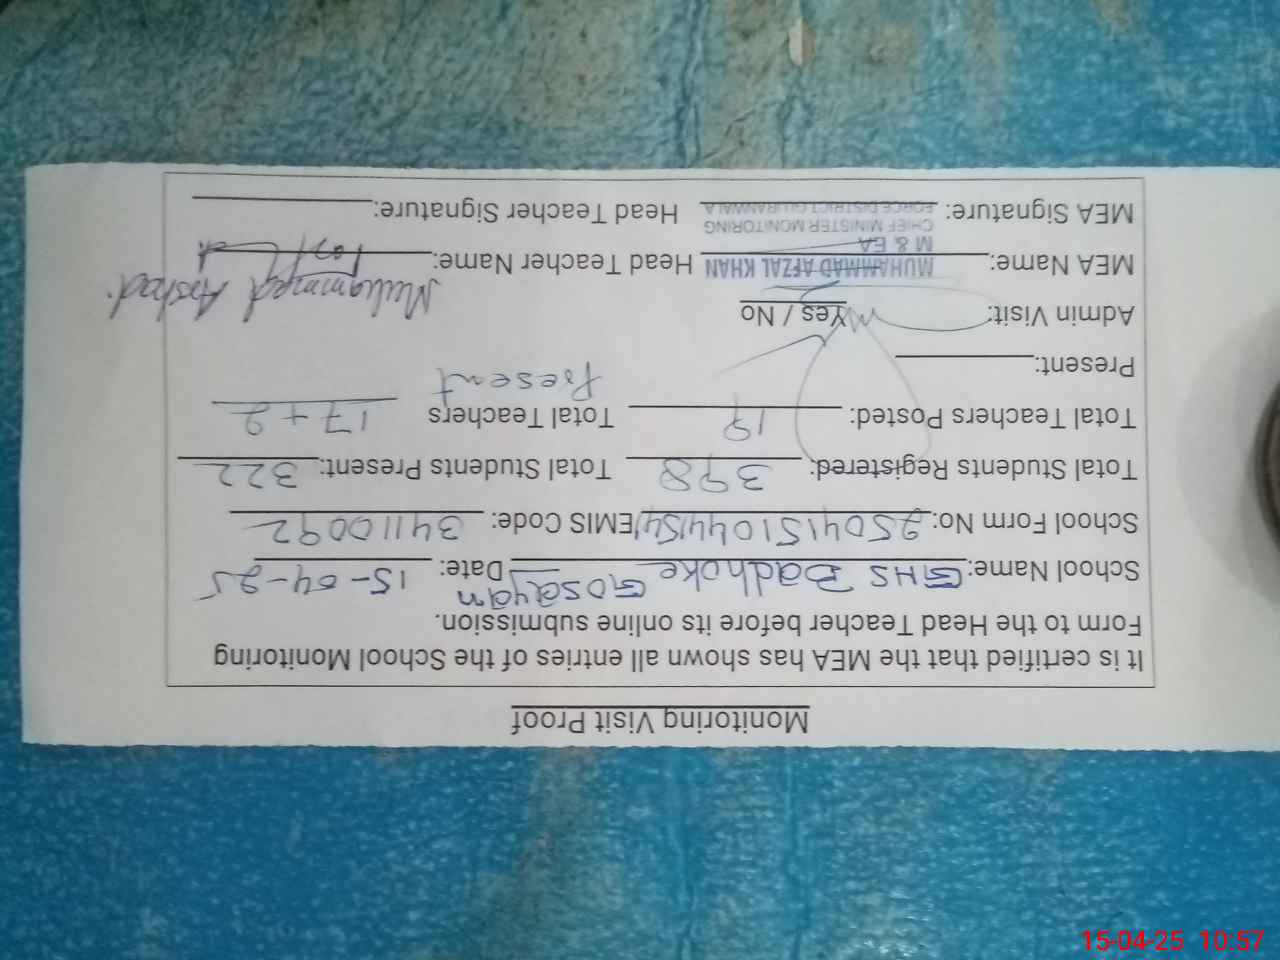 Monitoring Visit Proof
It is certified that the MEA has shown all entries of the School Monitoring
Form to the Head Teacher before its online submission.
School Name: GHS Badhoke Gosayan Date: 15-04-25
School Form No: EMIS Code: 34110092
Total Students Registered: 398 Total Students Present: 322
Total Teachers Posted: 19 Total Teachers 17+2
Present: Present
Admin Visit: Yes / No
MEA Name: MUHAMMAD AFZAL KHAN Head Teacher Name: Muhammad Arshad
M & EA
CHIEF MINISTER MONITORING
FORCE DISTRICT GUJRANWALA
MEA Signature: Head Teacher Signature:
15-04-25 10:57